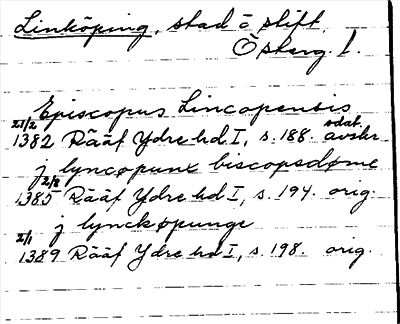 Linköping, stad o stift.
Österg. l.
Episcopus Lincopensis
21/2 1382 Rääf Ydre hd I, s. 188. sdat. avskr.
j lyncopunx biscopsdøme
2/8 1385 Rääf Ydre hd I, s. 194. orig.
j lynckøpunge
2/1 1389 Rääf Ydre hd I, s. 198. orig.